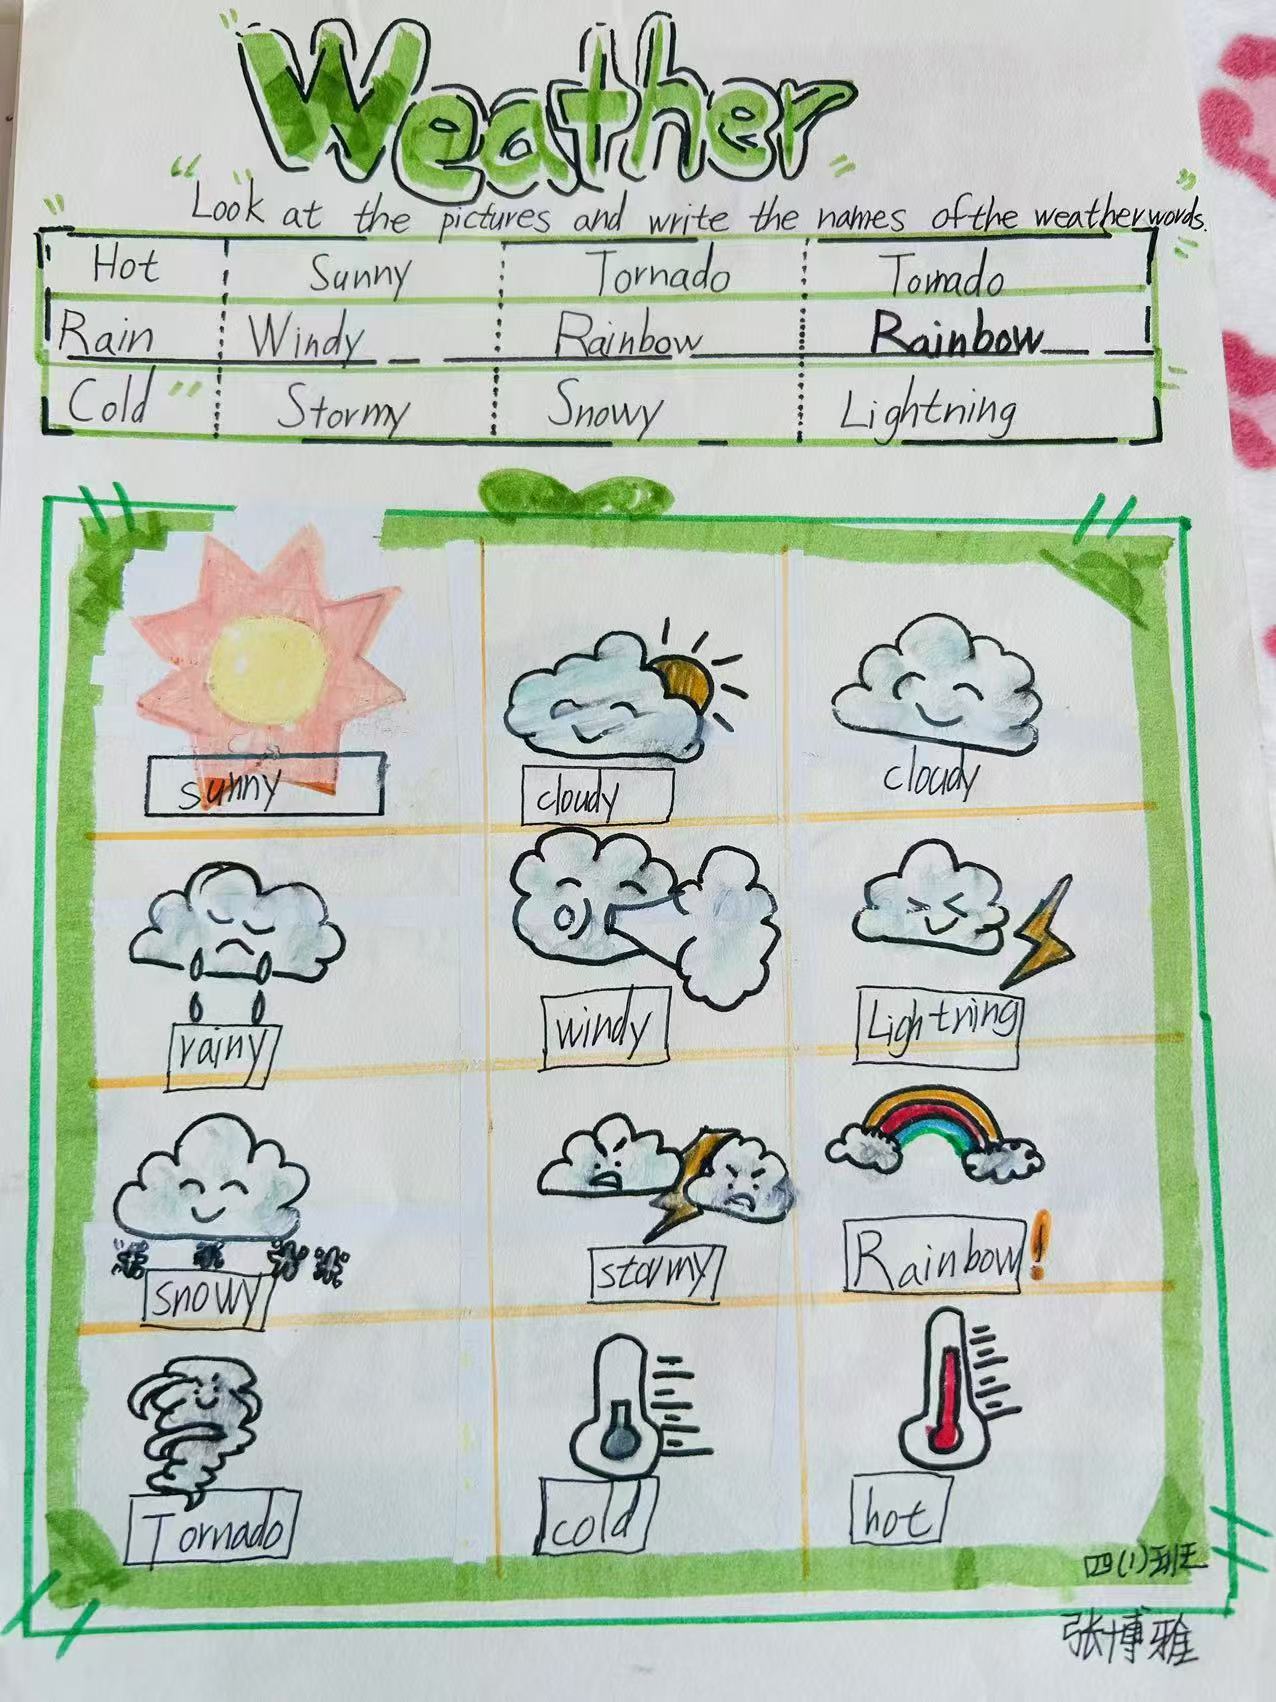 Weather
Look at the pictures and write the names of the weather words.
Hot Sunny Tornado Tornado
Rain Windy Rainbow Rainbow
Cold Stormy Snowy Lightning
sunny cloudy cloudy
rainy windy Lightning
snowy stormy Rainbow!
Tornado cold hot
四(1)班
张博雅